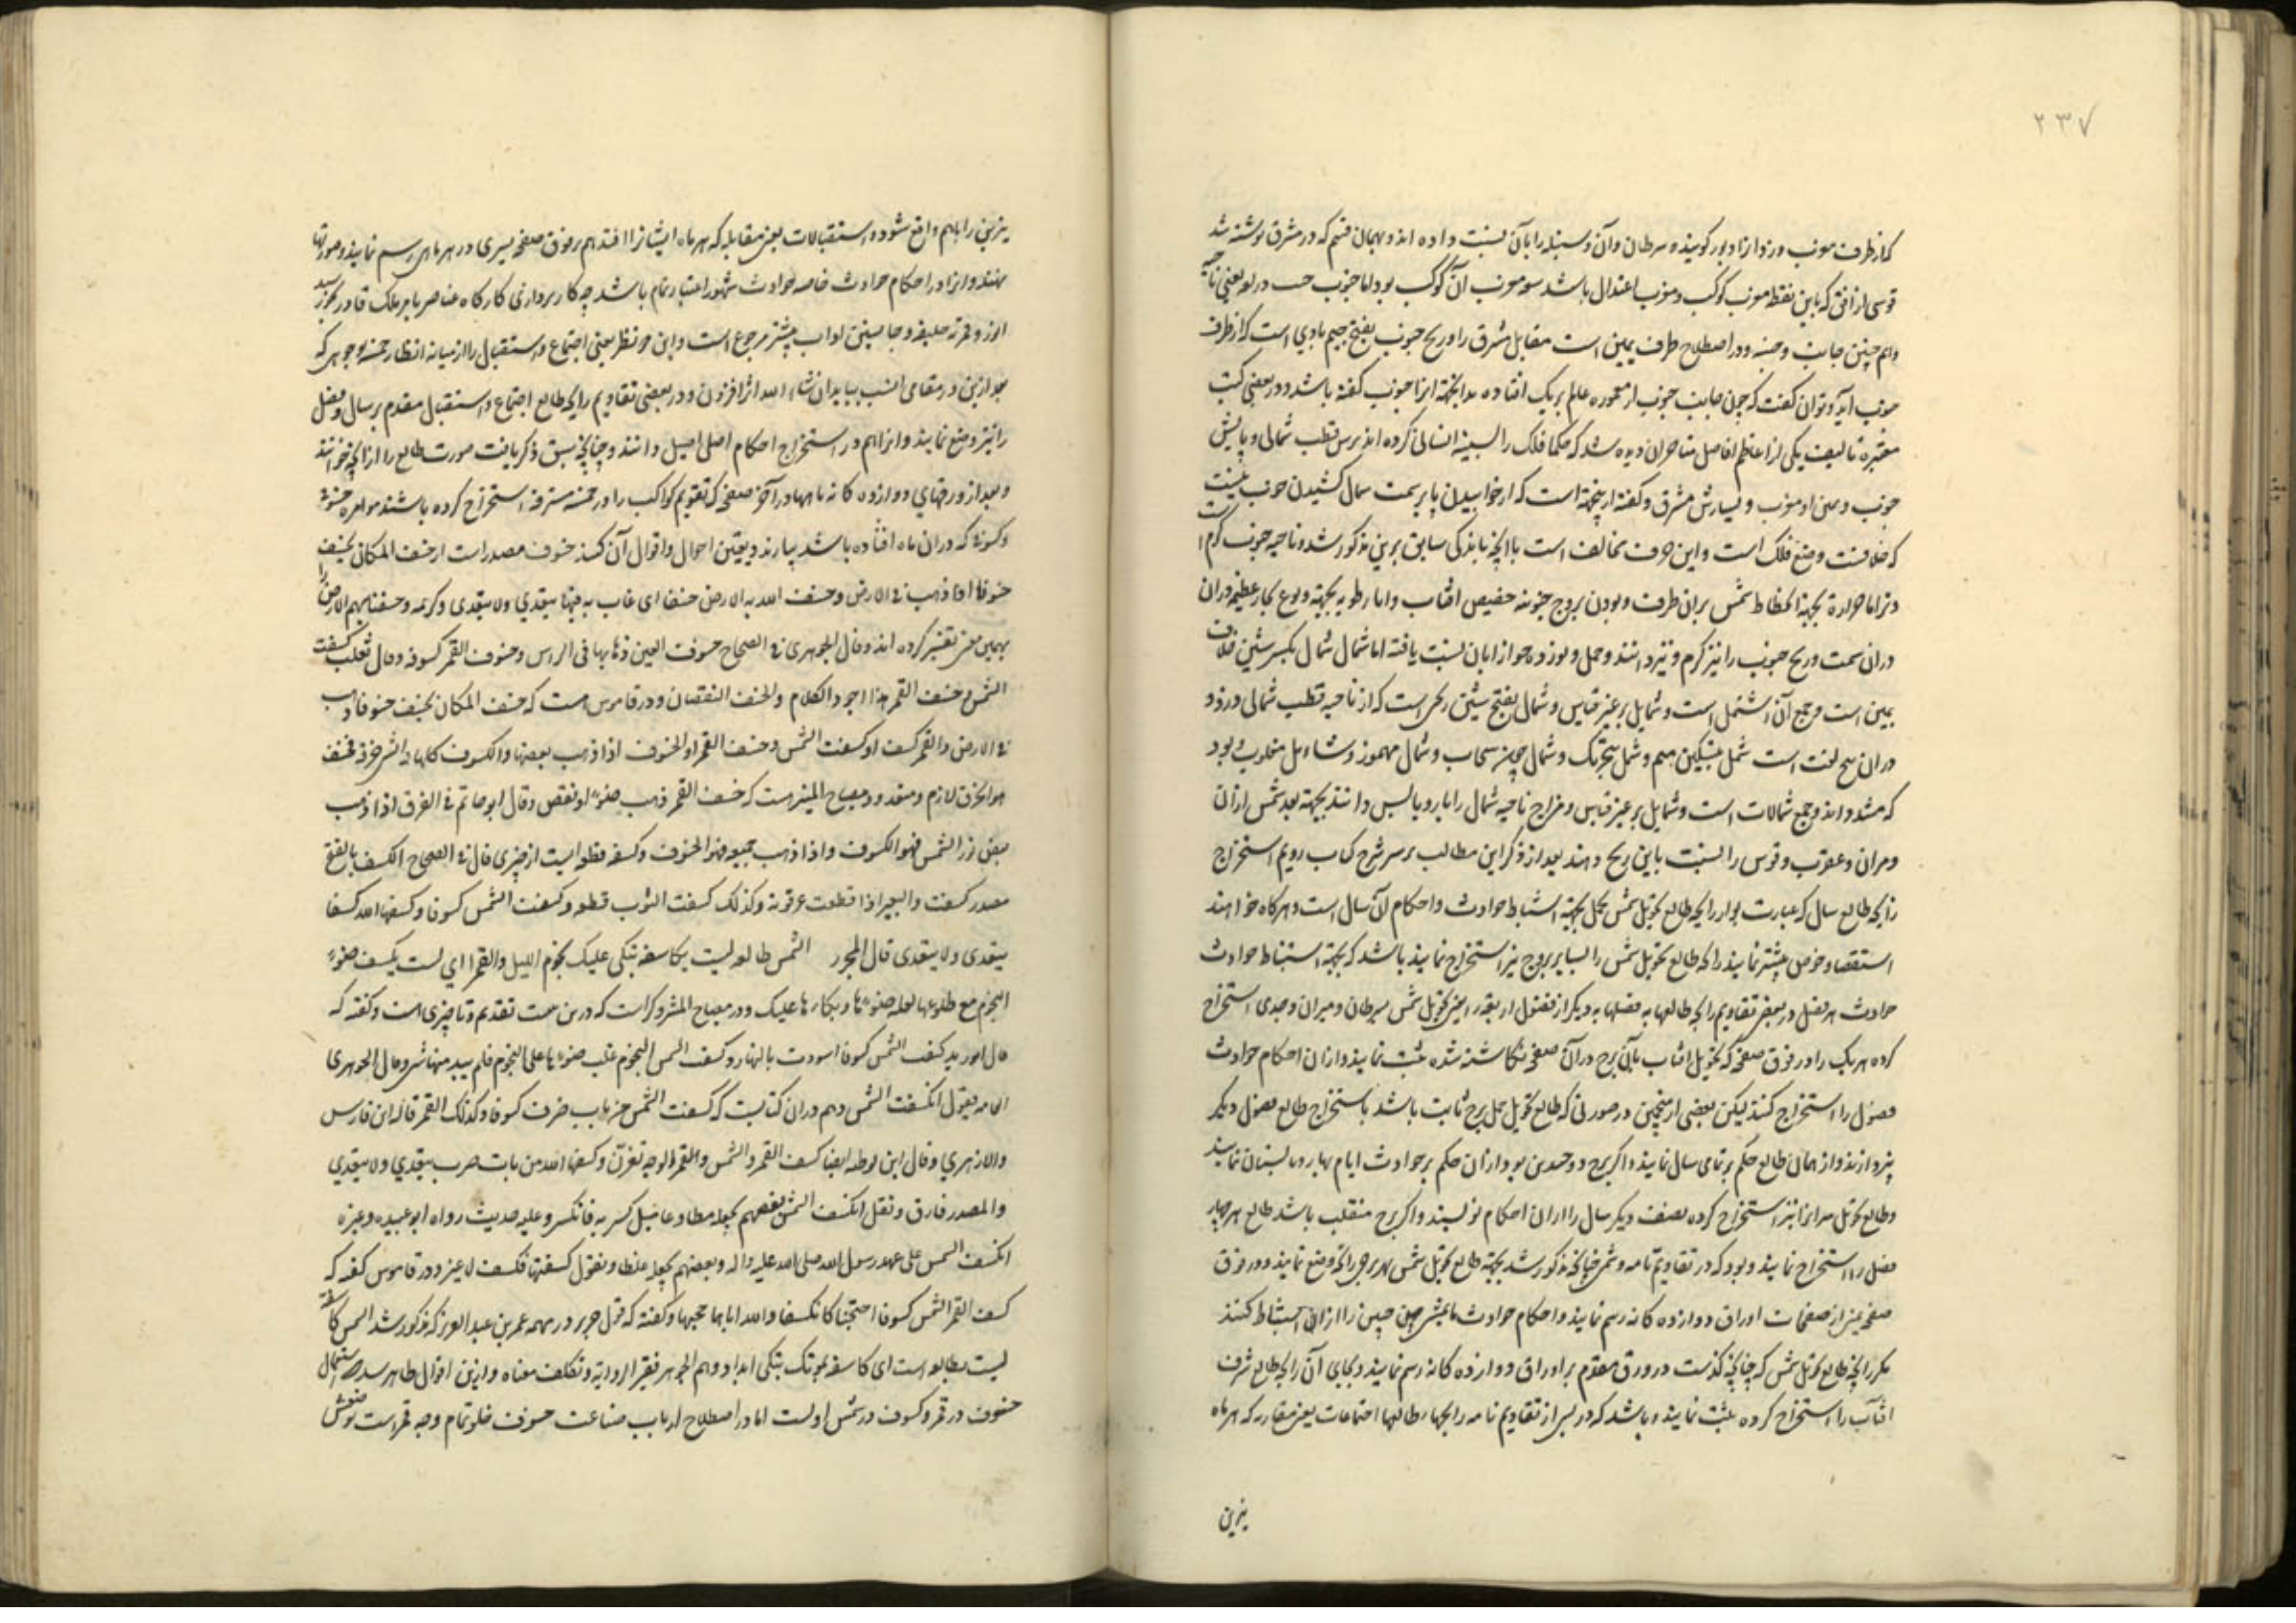 ۲۳۷
که از طرف مغرب وزد و آنرا دبور گویند و سرطان و آن و سنبله را بآن نسبت داده اند و بهمان قسم که در مشرق نوشته شد
قوسی از افق که باین نقطه مغرب کوکب و مغرب اعتدال باشد سعه مغرب آن کوکب بود اما جنوب در لغه یعنی ناحیه
و هم چنین جانب و در اصطلاح طرف یمین است مقابل مشرق را و ریح جنوب بفتح جیم بادی است که از طرف
جنوب آید و توان گفت که چون جانب جنوب از معموره عالم بر یک افتاده بدانجهة آنرا جنوب گفته باشد و در بعضی کتب
معتبره تالیف یکی از اعاظم افاضل دیده شد که حکما فلک را انسانی کرده اند برس قطب شمالی و پایش
جنوب و یمین او مغرب و یسارش مشرق و گفته ازینجهة است که از خوابیدن پا بر سمت شمال کشیدن خوب نیست
که خلافت وضع فلک است و این حرف مخالف است با آنچه باندکی سابق برین مذکور شد و ناحیه جنوب گرم است
و تر اما حرارة بجهة انحطاط شمس بران طرف و بودن بروج جنوبیه حضیض افتاب و اما رطوبه بجهة وقوع بحار عظیمه دران
دران سمت و ریح جنوب را نیز گرم و تر دانند و حمل و ثور و جوزا بآن نسبت یافته اما شمال شمال بکسر شین خلاف
یمین است و جمع آن اشمل است و شمایل بر غیر قیاس و شمال بفتح شین ریحی است که از ناحیه قطب شمالی وزد و
دران پنج لغت است شمل بتسکین میم و شمل بتحریک و شمال چون سحاب و شمأل مهموز و شاءمل مقلوب و بود
که مشدد اند و جمع شمالات است و شمایل بر غیر قیاس و مزاج ناحیه شمال را بارد و یابس دانند بجهة بعد شمس ازان
و میزان و عقرب و قوس را نسبت باین ریح دهند بعد از ذکر این مطالب بر سر شرح کتاب رویم استخراج
زایجه طالع سال که عبارت بود از زایجه طالع تحویل شمس بحمل بجهة استنباط حوادث و احکام آن سال است و هرگاه خواهند
استقصا و خوض بیشتر نمایند زایجه طالع تحویل شمس را بسایر بروج نیز استخراج نمایند باشد که بجهة استنباط حوادث
حوادث هر فصل در بعض تقاویم زایجه طالعها به فصلها به دیگر از فصول اربعه را یعنی تحویل شمس بسرطان و میزان و جدی استخراج
کرده هر یک را در فوق صفحه که تحویل افتاب بآن برج دران صفحه نگاشته شده ثبت نمایند و ازان احکام حوادث
فصول را استخراج کنند لیکن بعضی از منجمین در صورتی که طالع تحویل حمل برج ثابت باشد باستخراج طالع فصول دیگر
نپردازند و از همان طالع حکم بر تمامی سال نمایند و اگر برج ذو جسدین بود ازان حکم بر حوادث ایام بهار و تابستان نمایند
و طالع تحویل میزانرا نیز استخراج کرده نصف دیگر سال را ازان احکام نویسند و اگر برج منقلب باشد طالع هر چهار
فصل را استخراج نمایند و بود که در تقاویم تامه و شمسی چنانچه مذکور شد بجهة طالع تحویل شمس بهر برجی زایجه وضع نمایند و در فوق
صفحه یمین از صفحات اوراق دوازده گانه رسم نمایند و احکام حوادث را ازان استنباط کنند
مگر زایجه طالع تحویل شمس که چنانچه گذشت در ورق مقدم بر اوراق دوازده گانه رسم نمایند و بجای آن زایجه طالع شرف
افتاب را استخراج کرده ثبت نمایند و باشد که در بسی از تقاویم تامه زایجها طالعها اجتماعات یعنی مقارنه که هر ماه
نیرین
نیرین را باهم واقع شود و استقبالات یعنی مقابله که هر ماه ایشانرا افتد هم بر فوق صفحه یسری در هر ماهی رسم نمایند و صورتها
نهند و آنرا در احکام حوادث خاصه حوادث شهور اعتبار تمام باشد چه کار برداری کارگاه عناصر بامر ملک قادر
بیشتر مرجوع است و این دو نظر یعنی اجتماع و استقبال را از میانه انظار خمسه وجوهی که
بعد ازین در مقامی انسب بیاید ان شاء الله اثر افزون و در بعضی تقاویم زایجه طالع اجتماع و استقبال مقدم بر سال و فصل
را نیز وضع نمایند و آنرا هم در استخراج احکام اصلی اصیل دانند و چنانچه سبق ذکر یافت صورت طالع را از زایجه خوانند
و بعد از ورقهای دوازده گانه ماهها در آخر صفحه که تقویم کواکب را در خمسه مسترقه استخراج کرده باشند خسوف
و کسوف که دران ماه افتاده باشد بیارند و تعیین احوال و اقوال آن کنند خسوف مصدر است از خسف المکان یخسف
خسوفا اذا ذهب فی الارض و خسف الله به الارض خسفا ای غاب به فیها یتعدی و لا یتعدی و کریمه و خسفنا بهم الارض را
بهمین معنی تفسیر کرده اند و قال الجوهری فی الصحاح خسوف العین ذهابها فی الراس و خسوف القمر کسوفه و قال ثعلب کسفت
الشمس و خسف القمر هذا اجود الکلام و الخسف النقصان و در قاموس است که خسف المکان یخسف خسوفا ذهب
فی الارض و القمر کسف او کسفت الشمس و خسف القمر او الخسوف اذا ذهب بعضها و الکسوف کلها و الشی خرقه فخسف
هو انخرق لازم و متعد و در مصباح المنیر است که خسف القمر ذهب ضوءه او نقص و قال ابو حاتم فی الفرق اذا ذهب
بعض نور الشمس فهو الکسوف و اذا ذهب جمیعه فهو الخسوف و کسف قطعه ایست از چیزی قال فی الصحاح الکسف بالفتح
مصدر کسفت و البعیر اذا قطعت عرقوبه و کذلک کسفت الثوب قطعه و کسفت الشمس کسوفا و کسفها الله کسفا
یتعدی و لا یتعدی قال الشمس طالعة لیست بکاسفة تبکی علیک نجوم اللیل و القمرا ای لیست یکسف ضوء
النجوم مع طلوعها لقلة ضوءها و بکاءها علیک و در مصباح است و گفته که
کسفت الشمس کسوفا اسودت بالنهار و کسفت الشمس النجوم غلب ضوءها علی النجوم فلم یبد منها شی و قال الجوهری
العامه یقول انکسفت الشمس و هم دران کتابست که کسفت الشمس من باب ضرب کسوفا و کذلک القمر قاله ابن فارس
و الازهری و قال ابن القوطیه ایضا کسف القمر و الشمس و الوجه تغیرن و کسفها الله من باب ضرب یتعدی و لا یتعدی
و المصدر فارق و نقل انکسفت الشمس بعضهم یجعله مطاوعا مثل کسرته فانکسر و علیه حدیث رواه ابو عبیده و غیره
انکسفت الشمس علی عهد رسول الله صلی الله علیه و اله و بعضهم یجعله غلطا و یقول کسفتها فکسفت لا غیر و در قاموس گفته که
کسف القمر و الشمس کسوفا احتجبا کانکسفا و الله ایاهما حجبهما و گفته که قول جریر در عمر بن عبد العزیز که مذکور شد الشمس کاسفة
لیست بطالعه است ای کاسفة لموتک تبکی ابدا و وهم الجوهری فغیر الروایة و تکلف معناه و ازین اقوال ظاهر شد که استعمال
خسوف در قمر و کسوف در شمس اولیست اما در اصطلاح ارباب صناعت خسوف خلو تمام وجه قمر است